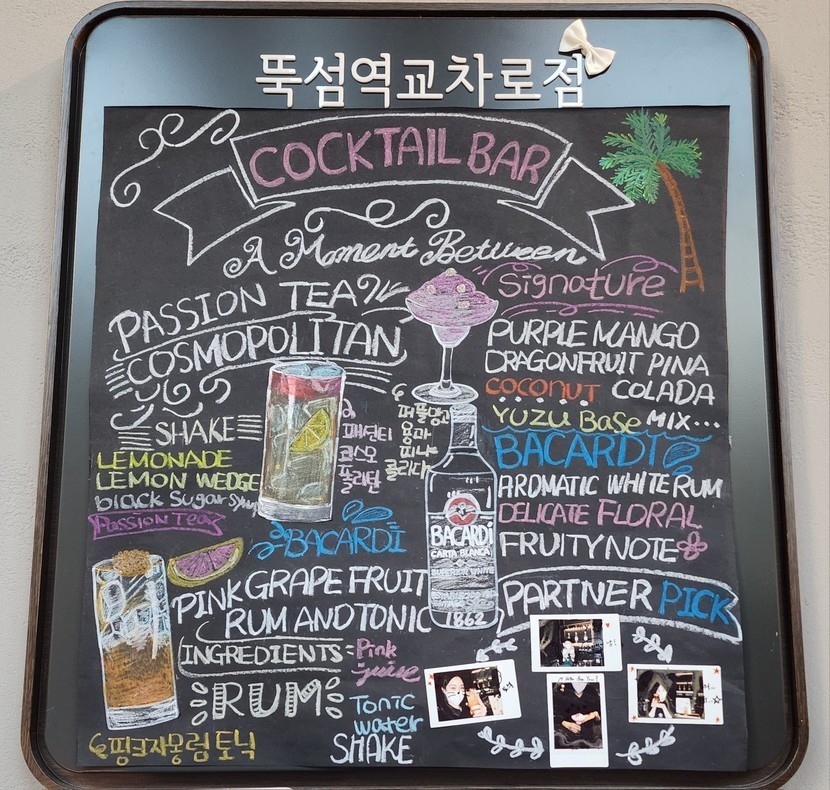 뚝섬역교차로점
COCKTAIL BAR
A Moment Between
PASSION TEA
COSMOPOLITAN
SHAKE
LEMONADE
LEMON WEDGE
black Sugar Syrup
Passion Tea
패션티
코스모
폴리탄
Signature
PURPLE MANGO
DRAGONFRUIT PINA
COCONUT COLADA
YUZU Base MIX...
퍼플망고
용과
피나
콜라다
BACARDI
AROMATIC WHITE RUM
DELICATE FLORAL
FRUITY NOTE
BACARDI
CARTA BLANCA
SUPERIOR WHITE
1862
BACARDI
PINK GRAPE FRUIT
RUM AND TONIC
INGREDIENTS: Pink
juice
RUM
Tonic
water
SHAKE
핑크자몽럼토닉
PARTNER PICK